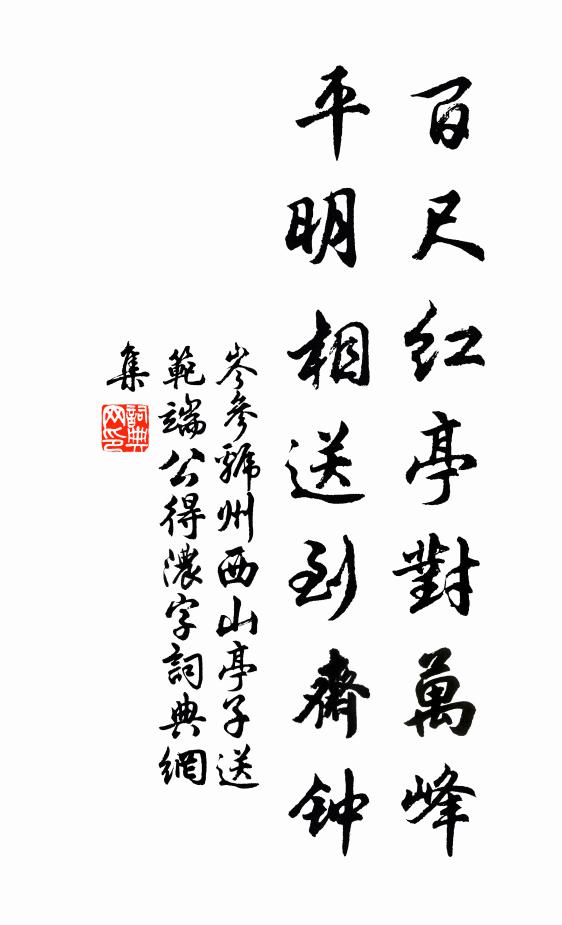 百尺红亭對萬峰
平明相送到齋钟
岑參虢州西山亭子送
範端公得濃字詞典網
集
詞典网印